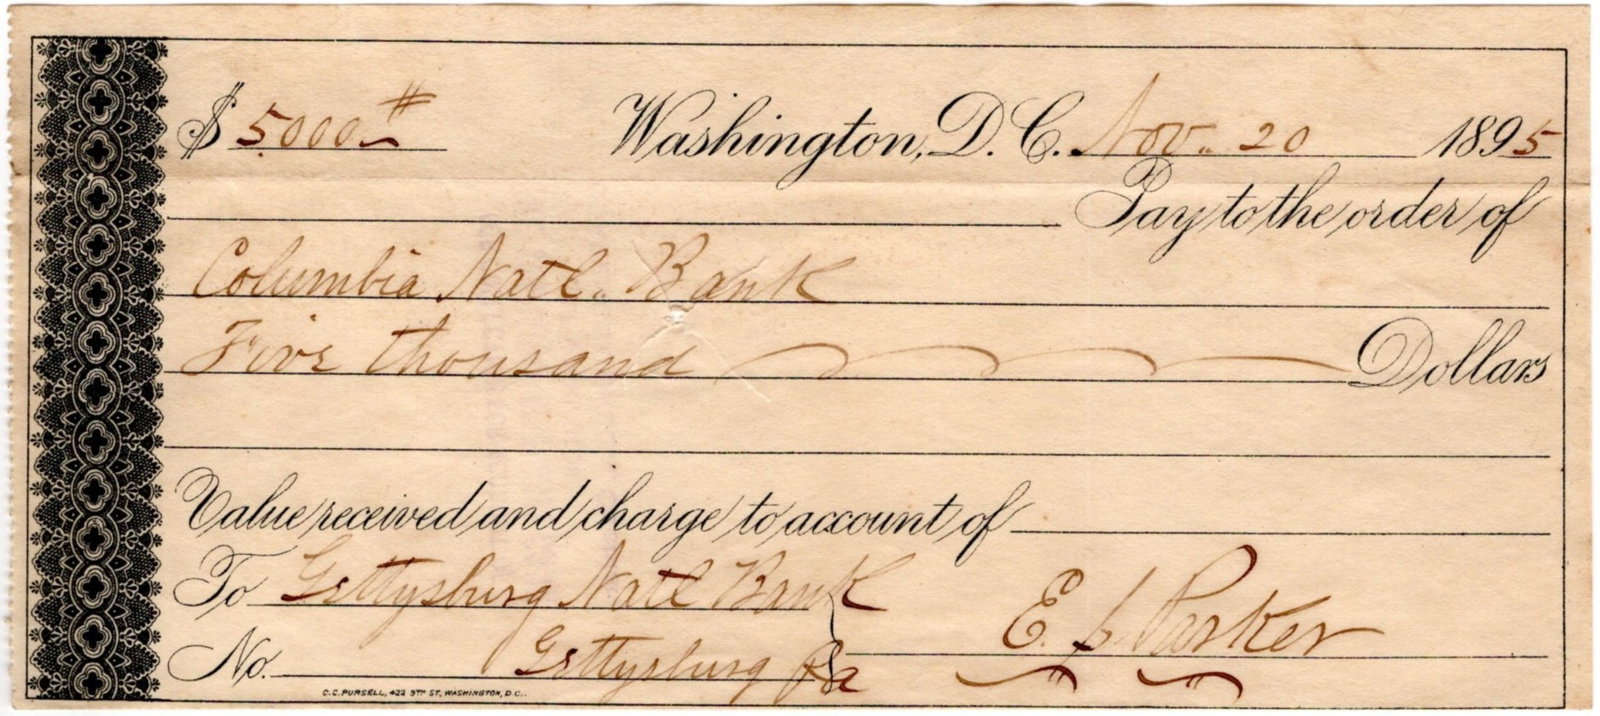 $ 5.000 # Washington, D. C. Nov. 20 1895
Pay to the order of
Columbia Natl. Bank
Five thousand Dollars
Value received and charge to account of
To Gettysburg Natl Bank
E. S. Parker
No. Gettysburg Pa
C. C. PURSELL, 422 9TH ST, WASHINGTON, D.C.